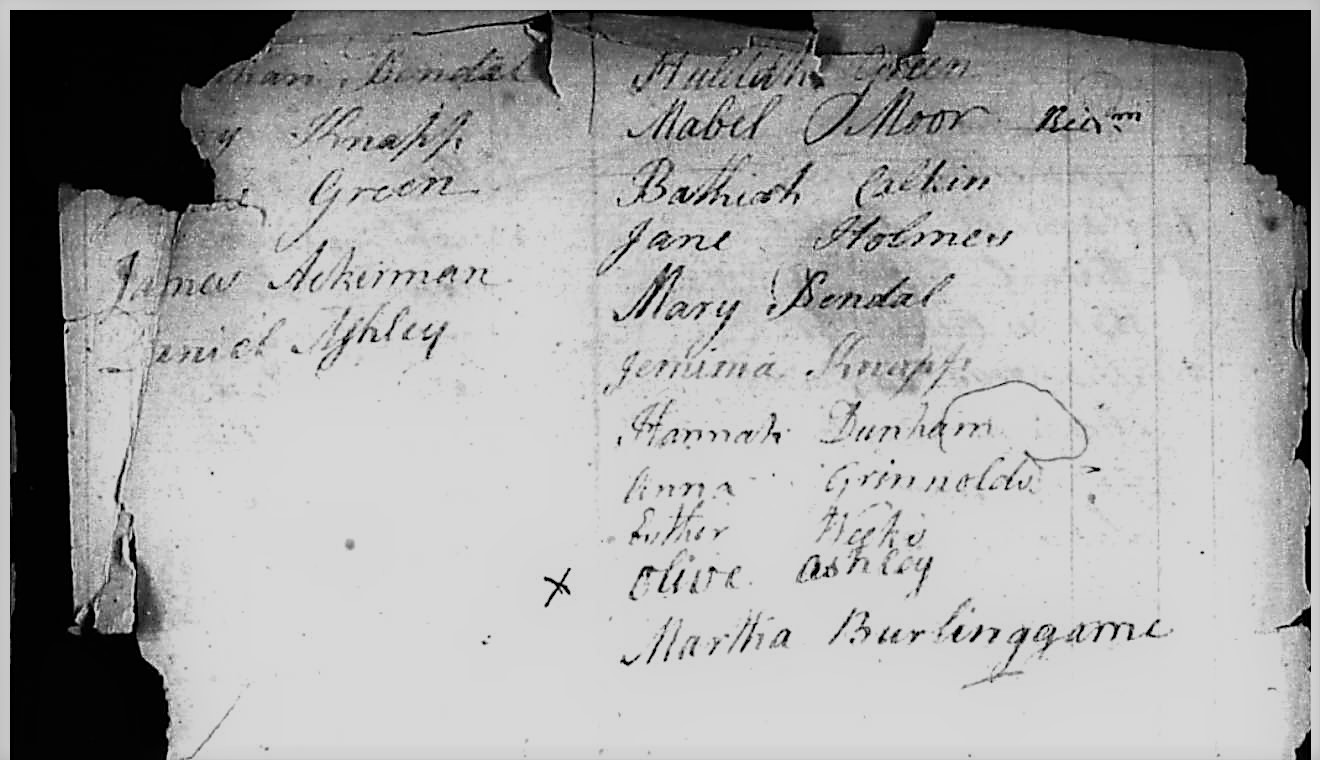 Bendal
Knapp
Green
James Ackerman
Daniel Ashley
Huldah Green
Mabel Moor
Bathiah Calkin
Jane Holmes
Mary Bendal
Jemima Knapp
Hannah Dunham
Anna Grinnolds
Esther Weeks
X Olive Ashley
Martha Burlinggame